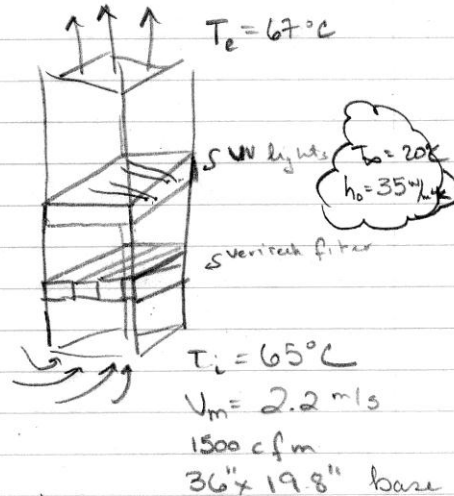 Te = 67°C
UV lights
T∞ = 20°C
h₀ = 35 W/m²k
filter
Ti = 65°C
Vm = 2.2 m/s
1500 cfm
36" x 19.8" base